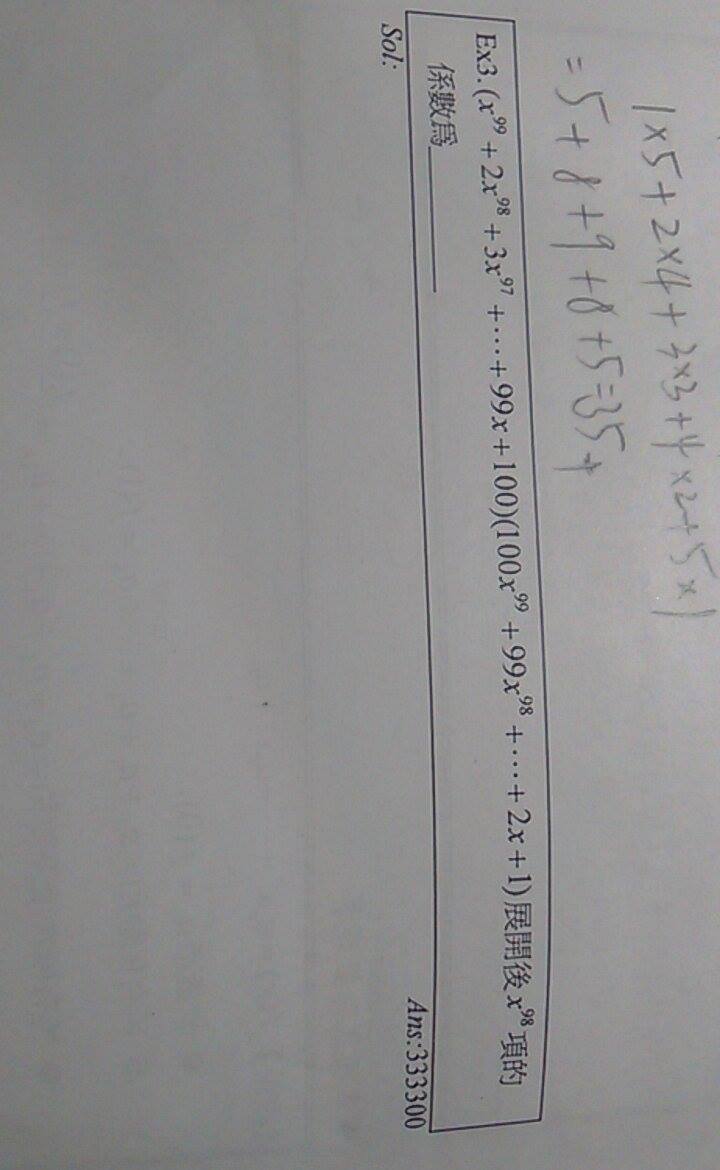 1×5+2×4+3×3+4×2+5×1
=5+8+9+8+5=35
Ex3. (x⁹⁹ + 2x⁹⁸ + 3x⁹⁷ + ⋯ + 99x + 100)(100x⁹⁹ + 99x⁹⁸ + ⋯ + 2x + 1) 展開後 x⁹⁸ 項的
係數為________
Sol:
Ans:333300